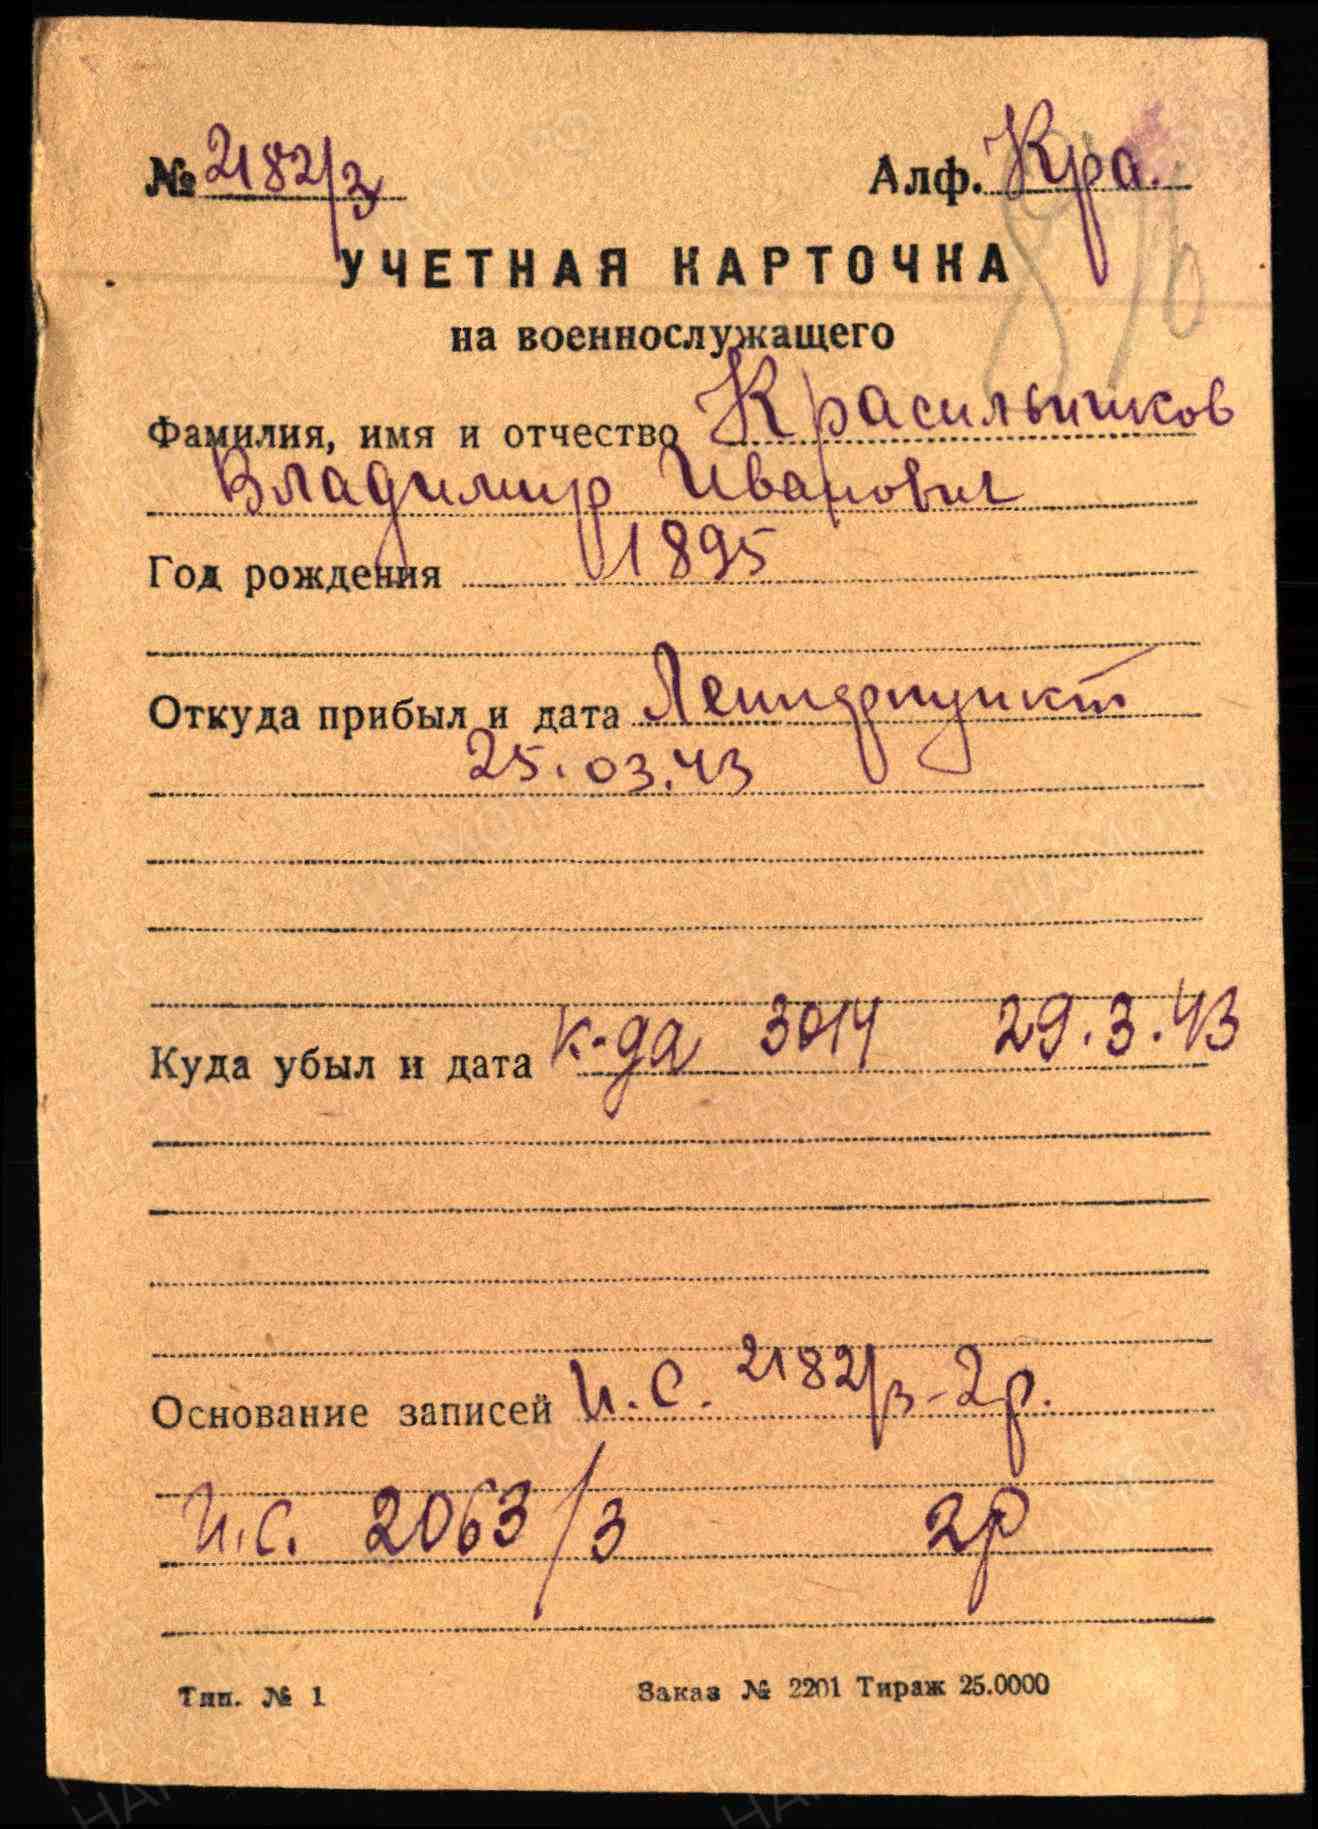 № 2182/3 Алф. Кра.
876
УЧЕТНАЯ КАРТОЧКА
на военнослужащего
Фамилия, имя и отчество Красильников
Владимир Иванович
Год рождения 1895
Откуда прибыл и дата Ленигрпункт
25.03.43
Куда убыл и дата к-да 3014 29.3.43
Основание записей И.С. 2182/з-2р.
И.С. 2063/3 2р
Тип. № 1 Заказ № 2201 Тираж 25.0000